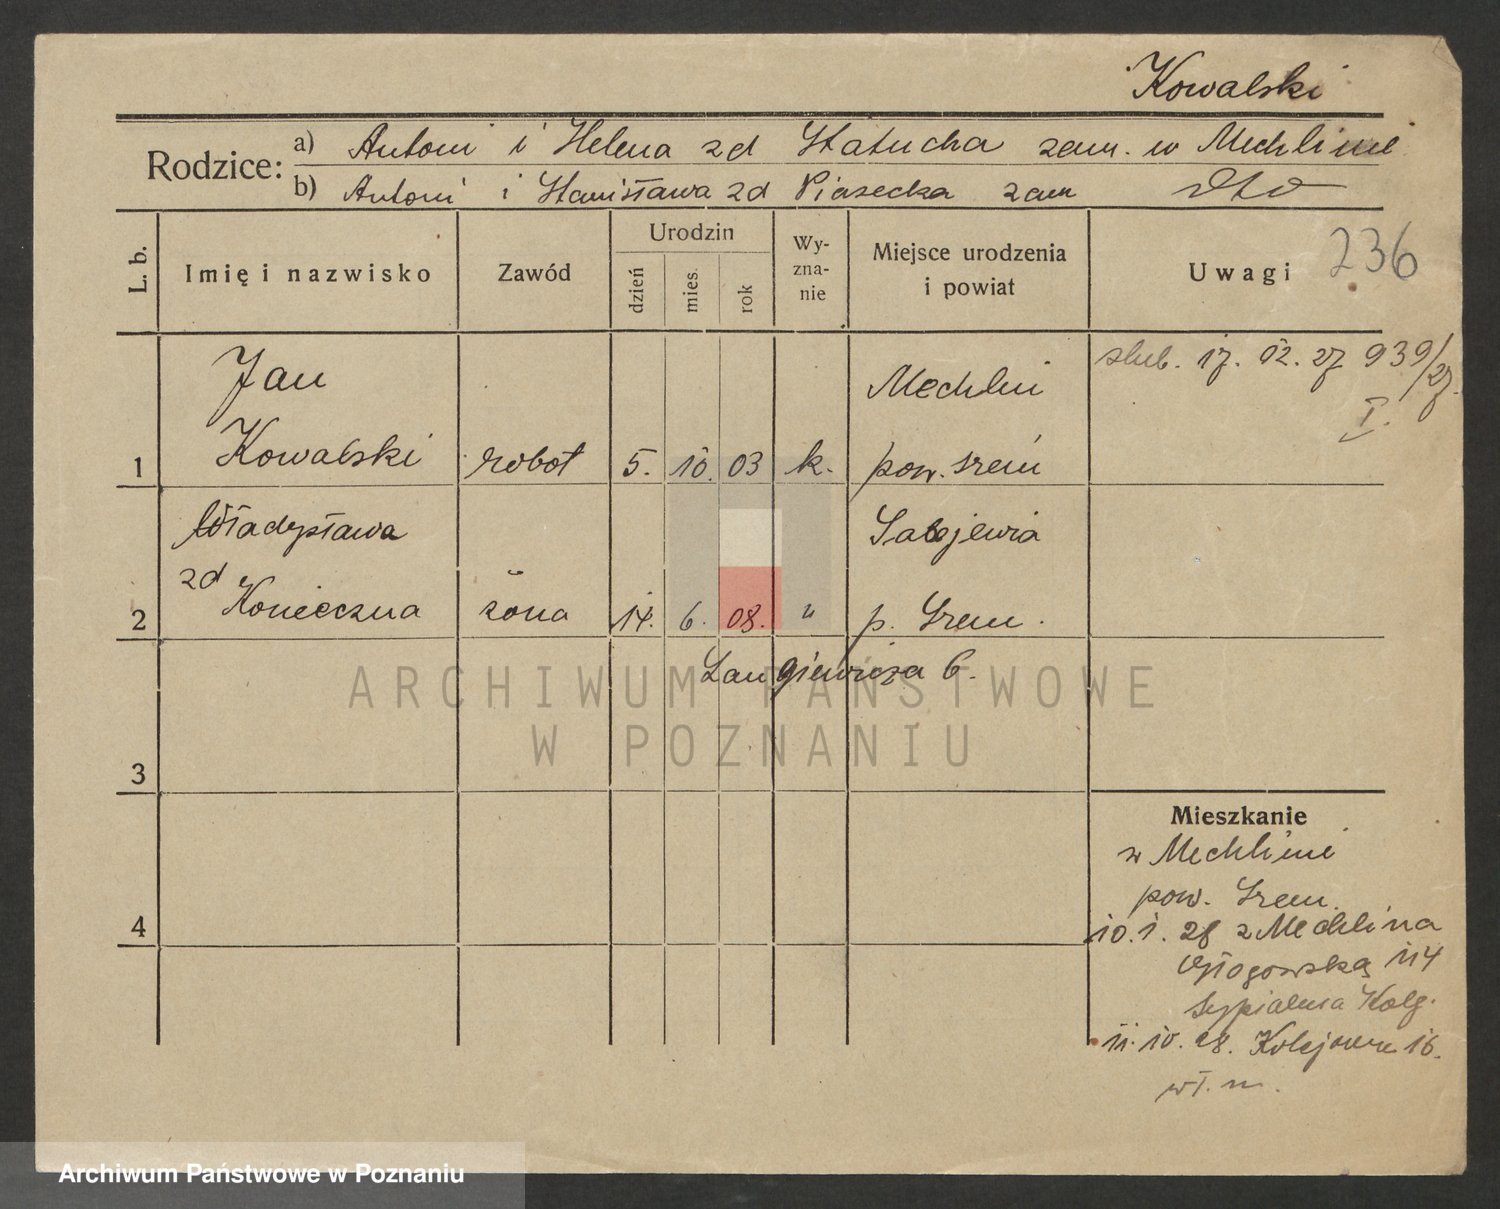 Kowalski
Rodzice: a) Antoni i Helena zd Statucha zam. w Mechlinie
b) Antoni i Stanisława zd Piasecka zam dto
L. b.
Imię i nazwisko
Zawód
Urodzin
dzień
mies.
rok
Wy-
zna-
nie
Miejsce urodzenia
i powiat
Uwagi 236
Jan Mechlin ślub. 17. 12. 27 939/27.
I.
1 Kowalski robot 5. 10. 03 k. pow. Śrem
Władysława
zd
2 Konieczna żona 14. 6. 08. " p. Śrem.
Langiewicza 6.
ARCHIWUM PAŃSTWOWE
W POZNANIU
3
Mieszkanie
w Mechlinie
pow. Śrem.
4
10. 1. 28 z Mechlina
Głogowska 114
Sypialnia Kolej.
11. 10. 28. Kolejowa 16.
wł. m.
Archiwum Państwowe w Poznaniu